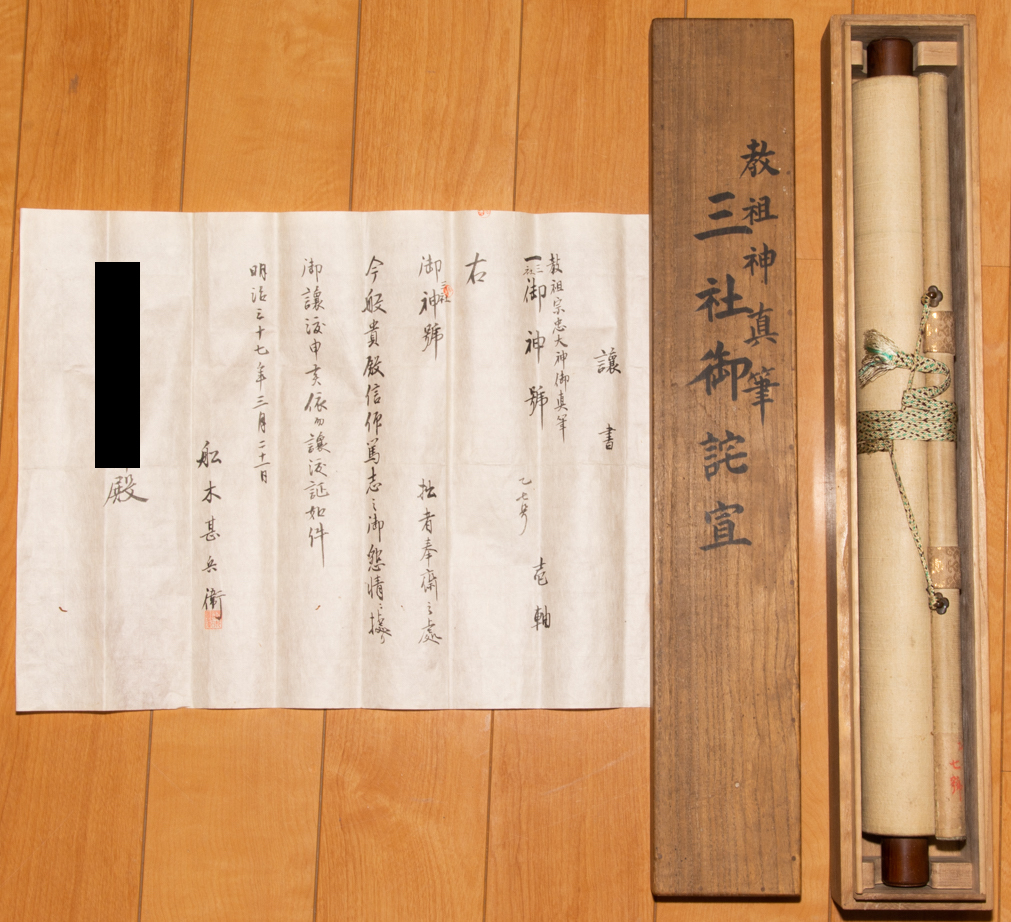 讓書
教祖宗忠大神御真筆
一三社御神號
乙七号
壱軸
右
御神號
拙者奉齋之處
今般貴殿信仰篤志之御懇情ニ據り
御讓渡申候依而讓渡証如件
明治三十七年三月二十一日
舩木甚兵衛
殿
教祖神真筆
三社御詫宣
七號